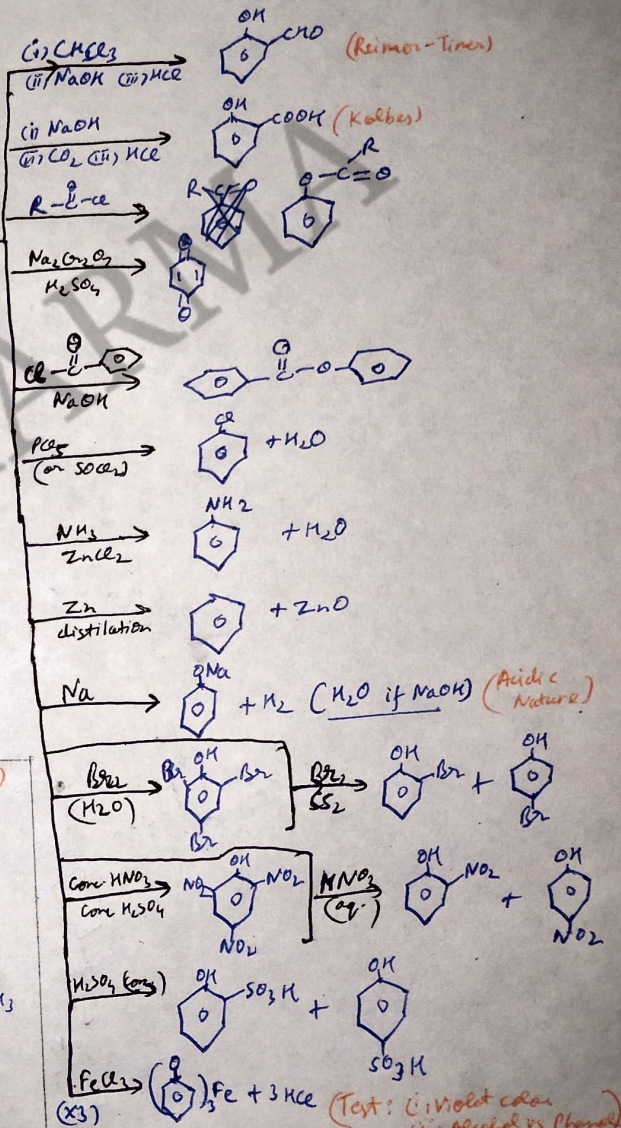 (i) CHCl3
(ii) NaOH (iii) HCl
OH
CHO
(Reimer-Timen)
(i) NaOH
(ii) CO2 (iii) HCl
OH
COOH
(Kolbes)
R-C-Cl
O
R
O-C=O
Na2Cr2O7
H2SO4
O
O
O
Cl-C-
NaOH
O
-C-O-
PCl5
(or SOCl2)
Cl
+H2O
NH3
ZnCl2
NH2
+H2O
Zn
distilation
+ZnO
Na
ONa
+H2 (H2O if NaOH)
(Acidic Nature)
Br2
(H2O)
OH
Br
Br
Br
Br2
CS2
OH
Br
+
OH
Br
Conc. HNO3
Conc H2SO4
OH
NO2
NO2
NO2
HNO3
(aq.)
OH
NO2
+
OH
NO2
H2SO4 (conc)
OH
SO3H
+
OH
SO3H
FeCl3
(x3)
O
( )3Fe + 3HCl
(Test: (i) violet colour
Alcohol vs Phenol
ARMA